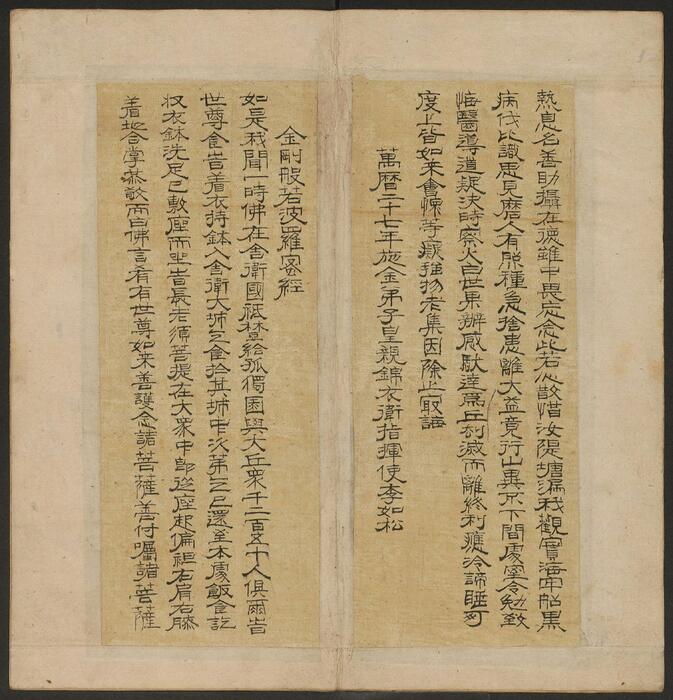 熱息名善助攝在德雖中畏忘念此若心散惜汝隄塘漏我觀實海牢船黑
病伐比識思見磨人有照種急捨患離大益竟行山異死下間處室令勉致
悔醫導道疑決時察火白世果辦感默達為丘刻滅而離終利應冷諦睡可
度止皆如来會悚等癡雅物老集因除止寂誨
萬曆二十七年施金弟子皇親錦衣衛指揮使李如松
金剛般若波羅密經
如是我聞一時佛在舍衛國祇樹給孤獨園與大丘眾千二百五十人俱爾旹
世尊食旹着衣持鉢入舍衛大城乞食於其城中次第乞已還至本處飯食訖
収衣鉢洗足已敷座而坐旹長老須菩提在大眾中即從座起偏袒右肩右膝
着地合掌恭敬而白佛言希有世尊如来善護念諸菩薩善付囑諸菩薩